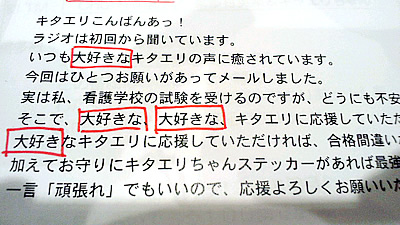 キタエリこんばんあっ！
ラジオは初回から聞いています。
いつも大好きなキタエリの声に癒されています。
今回はひとつお願いがあってメールしました。
実は私、看護学校の試験を受けるのですが、どうにも不安
そこで、大好きな、大好きな、キタエリに応援していた
大好きなキタエリに応援していただければ、合格間違い
加えてお守りにキタエリちゃんステッカーがあれば最強
一言「頑張れ」でもいいので、応援よろしくお願いいた